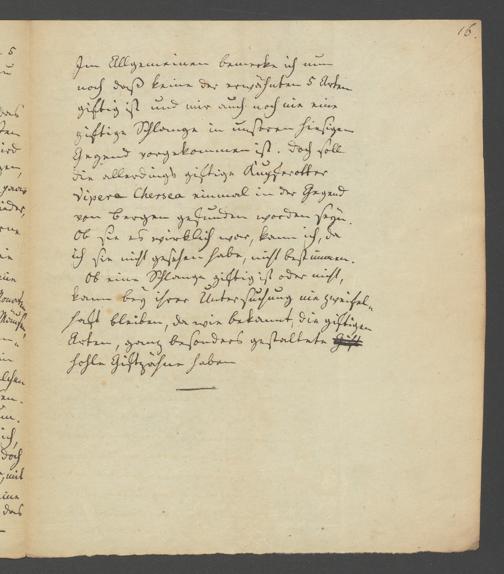 16.
Im Allgemeinen bemerke ich nun
noch daß keine der erwähnten 5 Arten
giftig ist und mir auch noch nie eine
giftige Schlange in unseren hiesigen
Gegend vorgekommen ist. Doch soll
die allerdings giftige Kupferotter
Vipera Chersea einmal in der Gegend
von Bergen gefunden worden seyn.
Ob sie es wirklich war, kann ich, da
ich sie nicht gesehen habe, nicht bestimmen.
Ob eine Schlange giftig ist oder nicht,
kann bey ihrer Untersuchung nie zweifel-
haft bleiben, da wie bekannt, die giftigen
Arten, ganz besonders gestaltete Gift
hohle Giftzähne haben